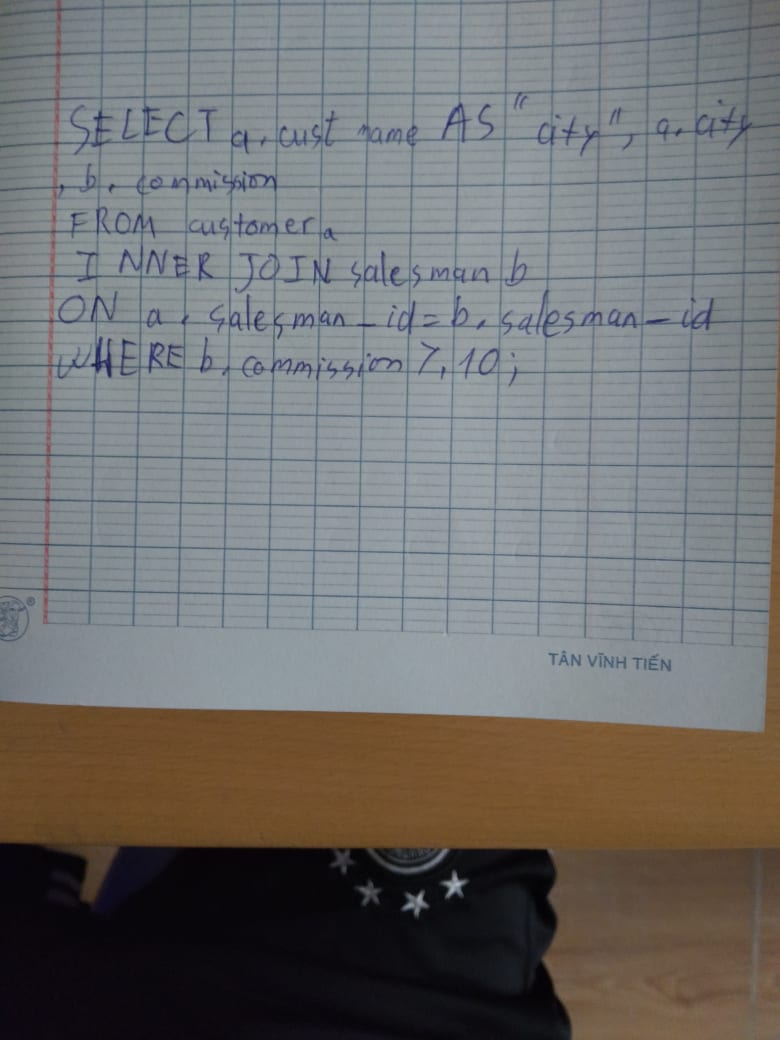 SELECT a. cust name AS "city", a. city
, b. commission
FROM customer a
INNER JOIN salesman b
ON a. salesman_id = b. salesman_id
WHERE b. commission >.10;
®
TÂN VĨNH TIẾN